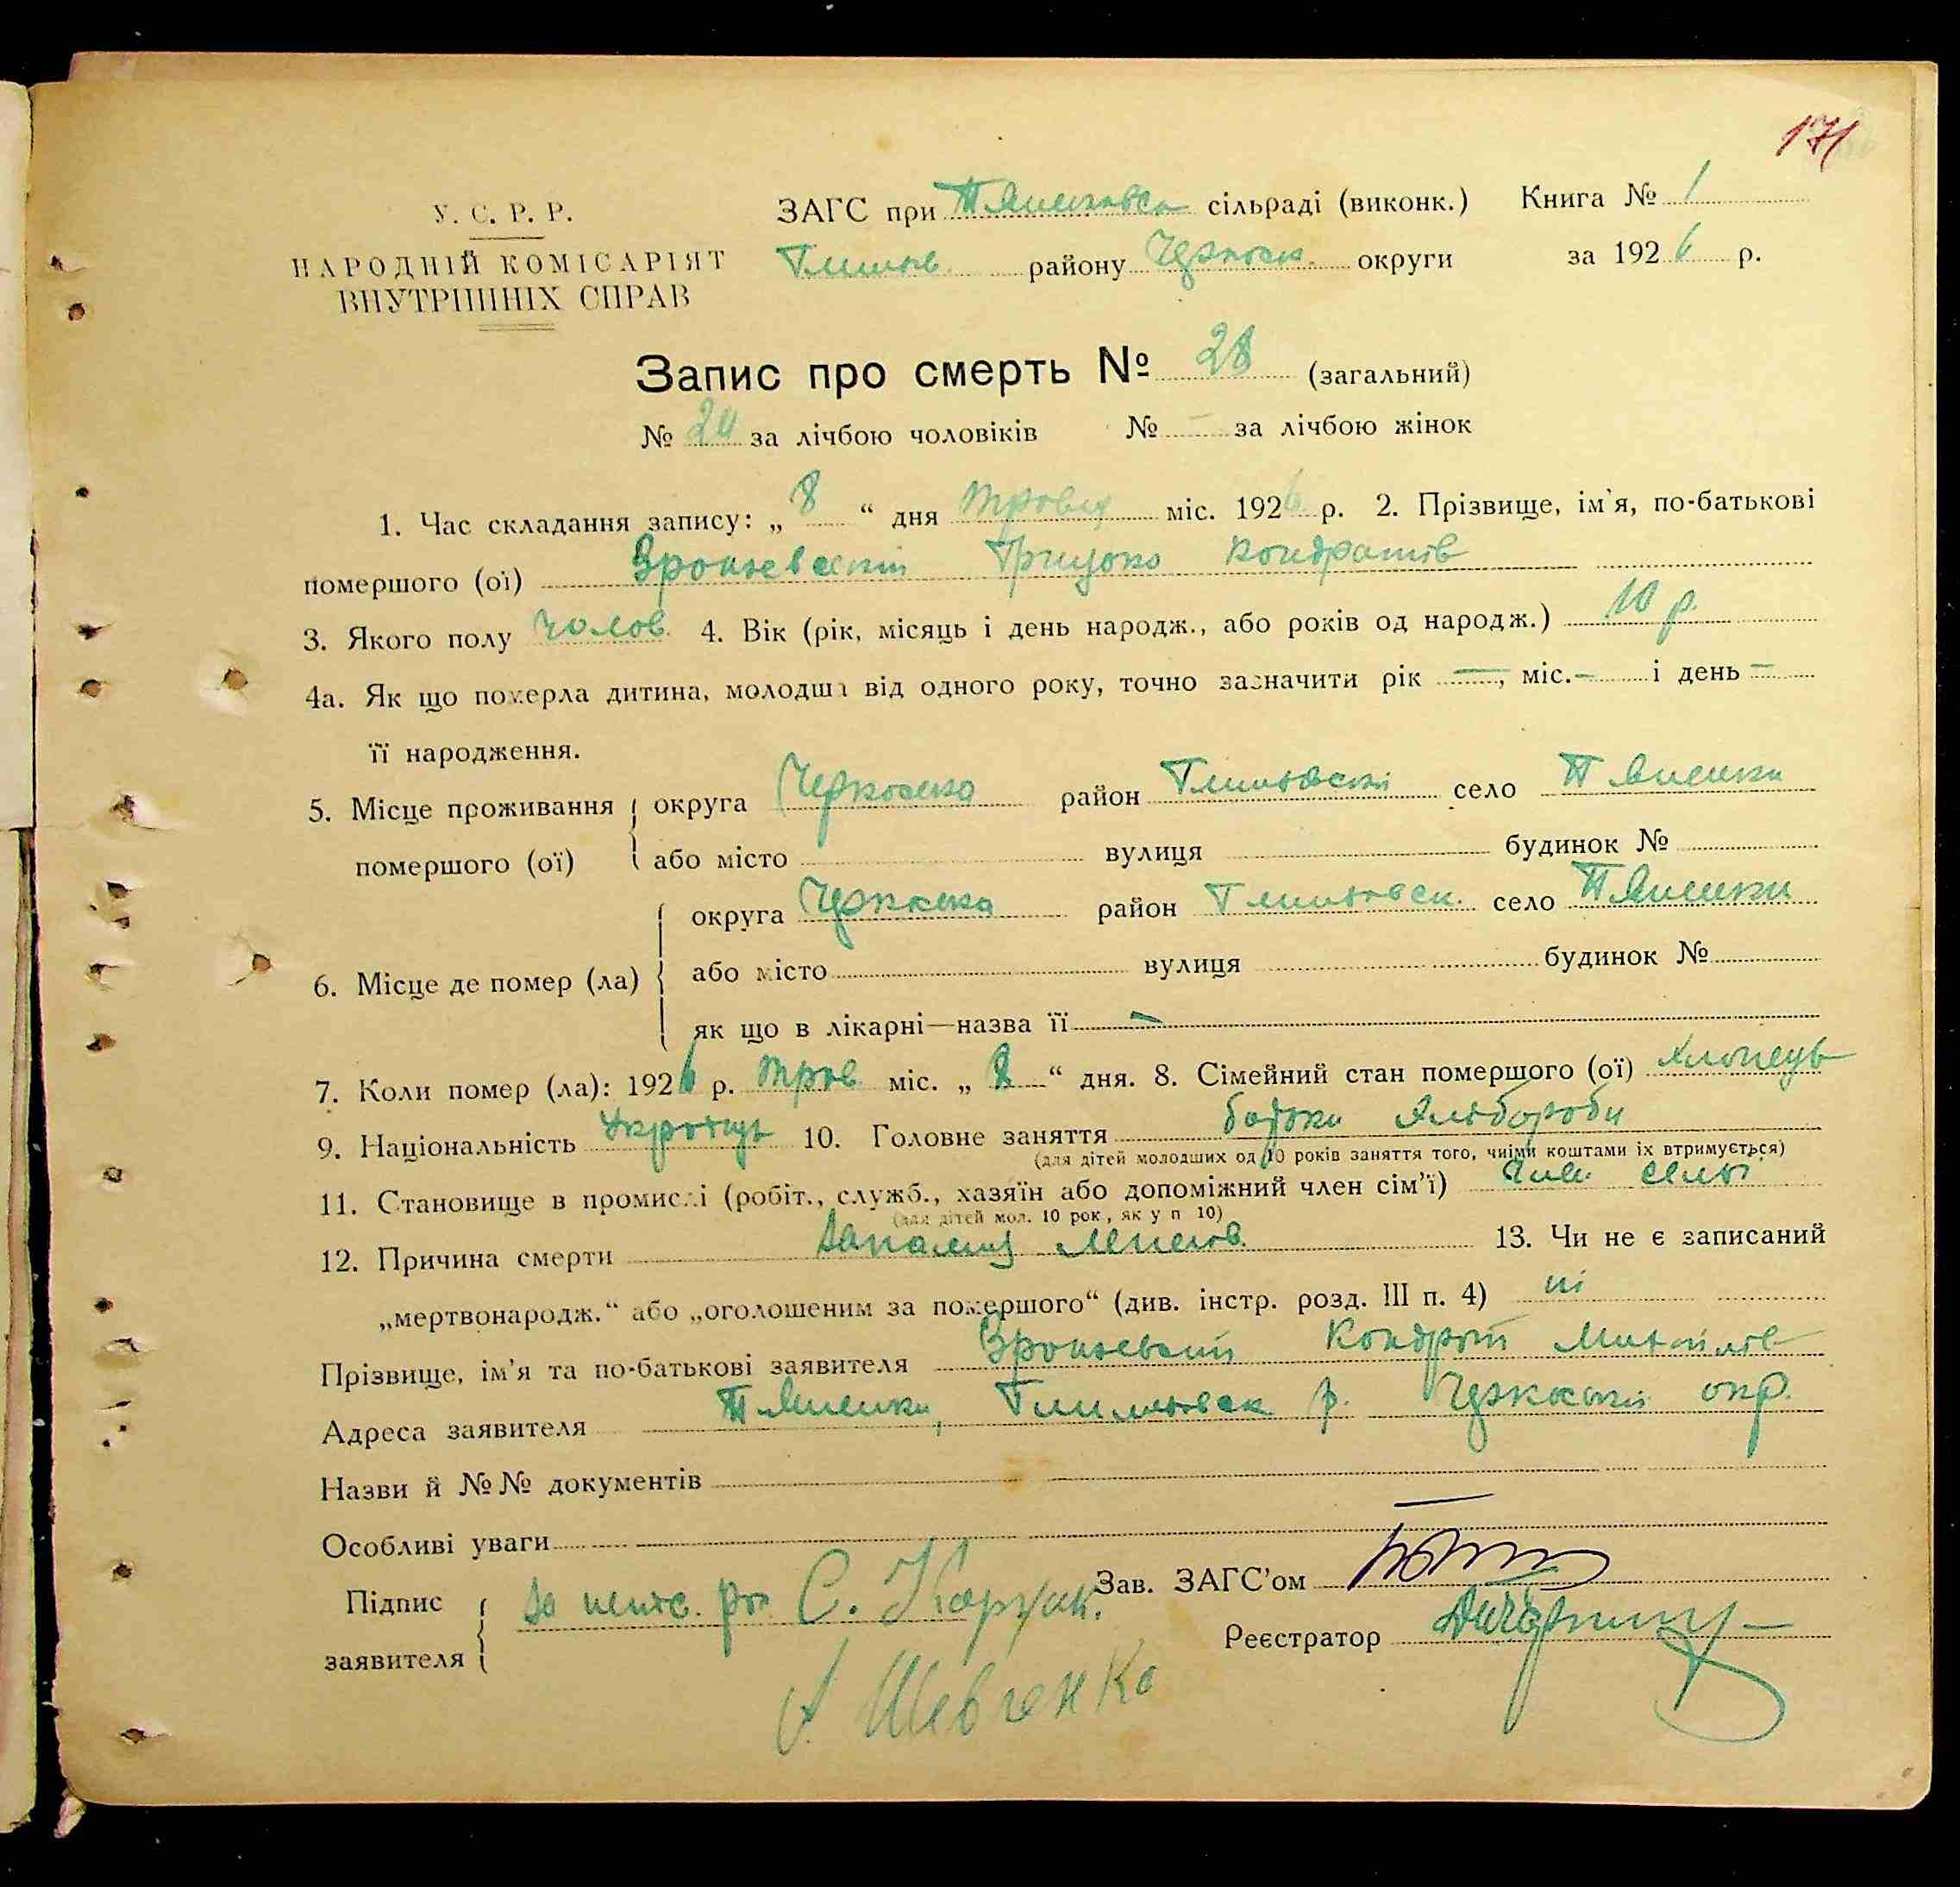 171
У. С. Р. Р.
НАРОДНІЙ КОМІСАРІЯТ
ВНУТРІШНІХ СПРАВ
ЗАГС при сільраді (виконк.) Книга № 1
району округи за 1926 р.
Запис про смерть № 28 (загальний)
№ 20 за лічбою чоловіків № – за лічбою жінок
1. Час складання запису: „ 8 “ дня Травня міс. 1926 р. 2. Прізвище, ім'я, по-батькові
помершого (ої) Грицько Кондратів
3. Якого полу чолов. 4. Вік (рік, місяць і день народж., або років од народж.) 10 р.
4а. Як що померла дитина, молодша від одного року, точно зазначити рік —, міс. – і день –
її народження.
5. Місце проживання помершого (ої) округа Черкаська район село
або місто вулиця будинок №
6. Місце де помер (ла) округа Черкаська район село
або місто вулиця будинок №
як що в лікарні—назва її –
7. Коли помер (ла): 1926 р. трав. міс. „ 8 “ дня. 8. Сімейний стан помершого (ої) хлопець
9. Національність Українець 10. Головне заняття батьки хлібороби
(для дітей молодших од 10 років заняття того, чиїми коштами їх втримується)
11. Становище в промислі (робіт., служб., хазяїн або допоміжний член сім'ї) член сім'ї
(для дітей мол. 10 рок, як у п 10)
12. Причина смерти 13. Чи не є записаний
„мертвонародж.“ або „оголошеним за помершого“ (див. інстр. розд. III п. 4) ні
Прізвище, ім'я та по-батькові заявителя Кондрат Михайлів
Адреса заявителя р. Черкаськ. окр.
Назви й №№ документів
Особливі уваги
Підпис заявителя За непис. роз. С. Коржак.
А. Шевченко
Зав. ЗАГС'ом
Реєстратор